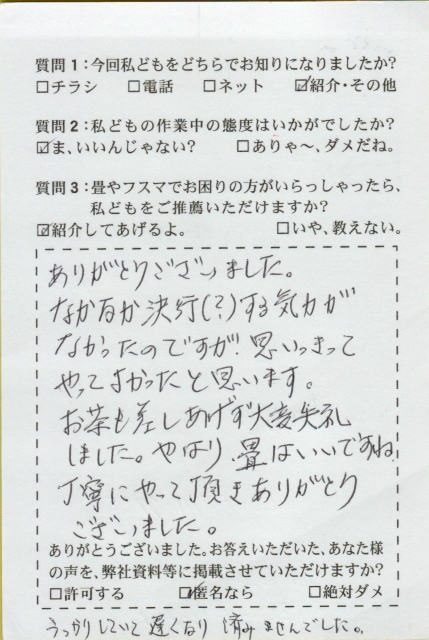 質問1：今回私どもをどちらでお知りになりましたか？
□チラシ □電話 □ネット ☑紹介・その他
質問2：私どもの作業中の態度はいかがでしたか？
☑ま、いいんじゃない？ □ありゃ〜、ダメだね。
質問3：畳やフスマでお困りの方がいらっしゃったら、
私どもをご推薦いただけますか？
☑紹介してあげるよ。 □いや、教えない。
ありがとうございました。
なかなか決行(？)する気力が
なかったのですが、思いきって
やってよかったと思います。
お茶も差しあげず大変失礼
しました。やはり畳はいいですね
丁寧にやって頂きありがとう
ございました。
ありがとうございました。お答えいただいた、あなた様
の声を、弊社資料等に掲載させていただけますか？
□許可する ☑匿名なら □絶対ダメ
うっかりしていて遅くなり済みませんでした。